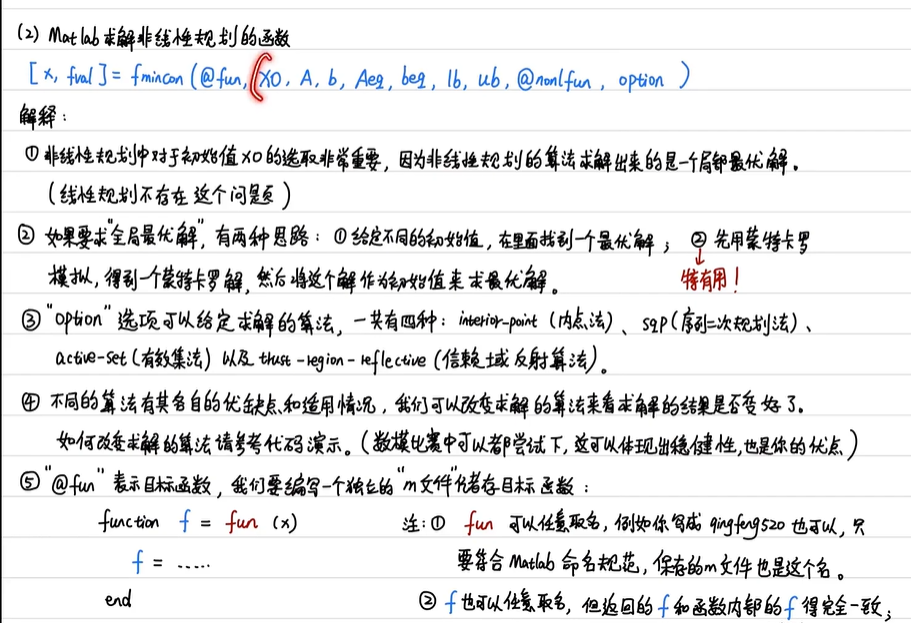 (2) Matlab求解非线性规划的函数
[x, fval] = fmincon(@fun, X0, A, b, Aeq, beq, lb, ub, @nonlfun, option)
解释：
① 非线性规划中对于初始值X0的选取非常重要，因为非线性规划的算法求解出来的是一个局部最优解。
（线性规划不存在这个问题）
② 如果要求"全局最优解"，有两种思路：① 给定不同的初始值，在里面找到一个最优解； ② 先用蒙特卡罗
模拟，得到一个蒙特卡罗解，然后将这个解作为初始值来求最优解。 特有用！
③ "option"选项可以给定求解的算法，一共有四种：interior-point（内点法）、sqp（序列二次规划法）、
active-set（有效集法）以及trust-region-reflective（信赖域反射算法）。
④ 不同的算法有其各自的优缺点和适用情况，我们可以改变求解的算法来看求解的结果是否变好了。
如何改变求解的算法请参考代码演示。（数模比赛中可以都尝试下，这可以体现出稳健性，也是你的优点）
⑤ "@fun"表示目标函数，我们要编写一个独立的"m文件"储存目标函数：
function f = fun (x) 注：① fun 可以任意取名，例如你写成qingfeng520也可以，只
f = ...... 要符合Matlab命名规范，保存的m文件也是这个名。
end ② f也可以任意取名，但返回的f和函数内部的f得完全一致；